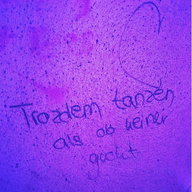 Trozdem tanzen
als ob keiner
guckt